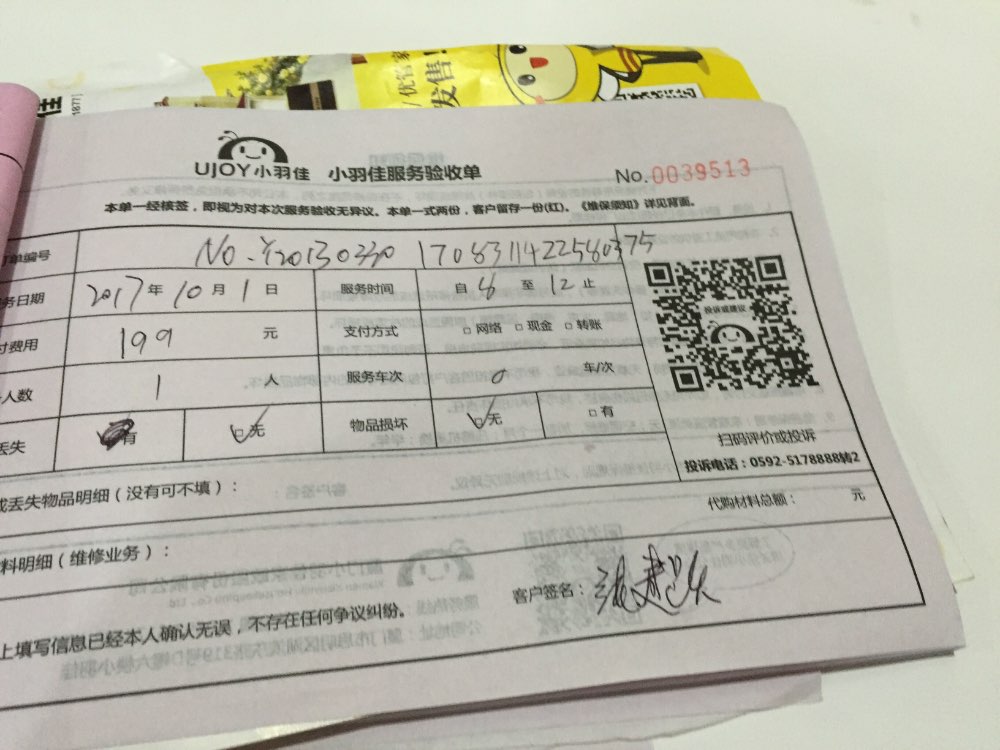 优管家
发售!
1877]
UJOY小羽佳 小羽佳服务验收单 No.0039513
本单一经核签，即视为对本次服务验收无异议。本单一式两份，客户留存一份(红)。《维保须知》详见背面。
单编号 NO.Y20130330 1708311422580375
务日期 2017年10月1日 服务时间 自8至12止
付费用 199 元 支付方式 □网络 □现金 □转账
人数 1 人 服务车次 0 车/次
丢失 有 □无 物品损坏 □无 □有
投诉或建议
扫码评价或投诉
投诉电话：0592-5178888转2
或丢失物品明细（没有可不填）：
代购材料总额： 元
料明细（维修业务）：
客户签名：
上填写信息已经本人确认无误，不存在任何争议纠纷。